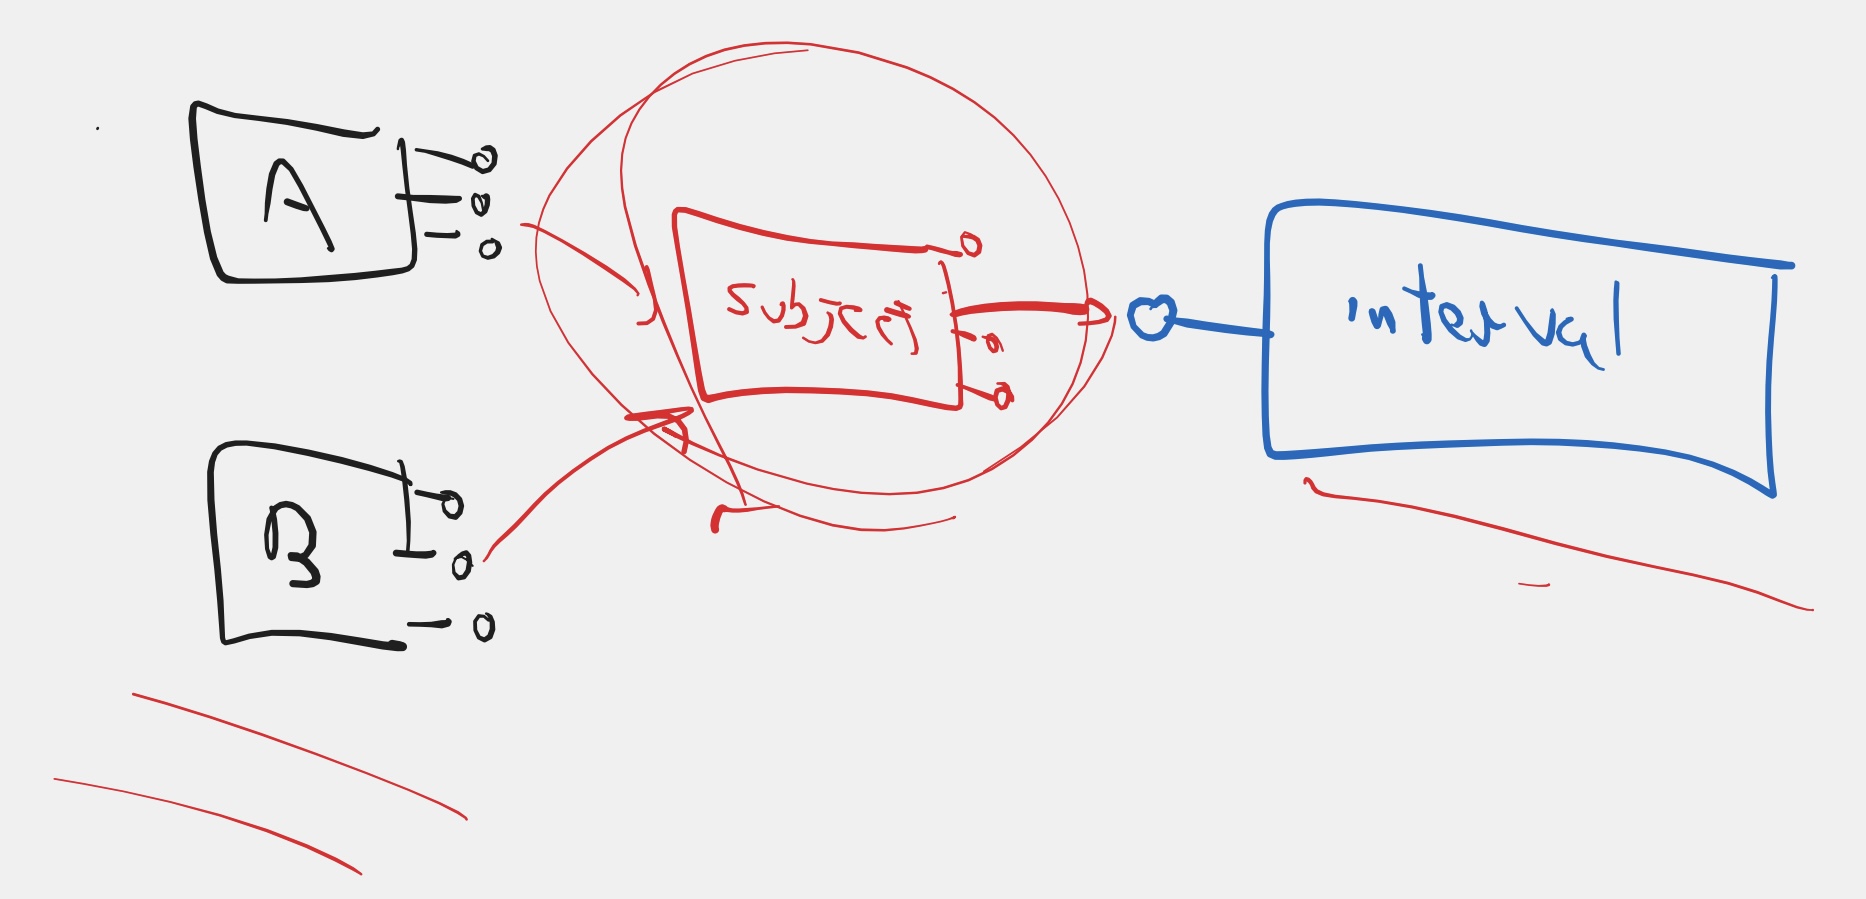 A
subject
interval
B